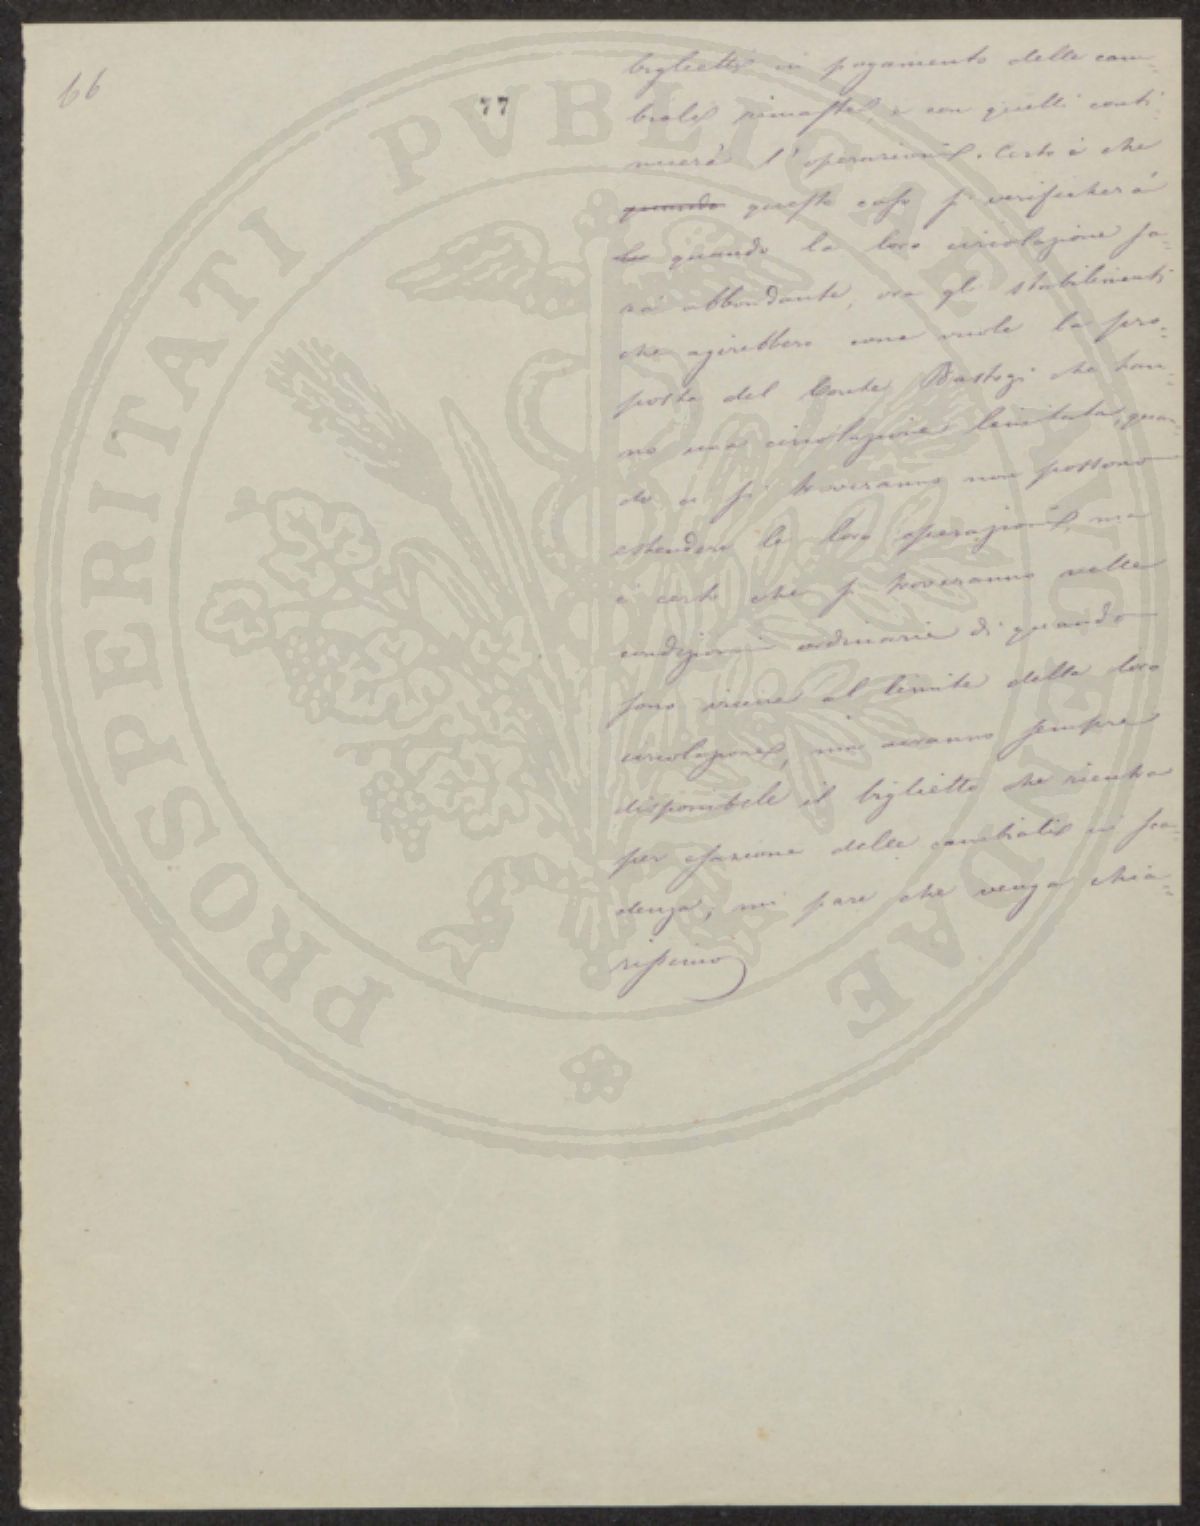 66
77
biglietti in pagamento delle cam-
biali rimaste, e con quelli conti-
nuerà l'operazione. Certo è che
quando questo caso si verificherà
quando la loro circolazione sa-
rà abbondante, ora gli stabilimenti
che agirebbero come vuole la pro-
posta del Conte Bastogi che han-
no una circolazione limitata, quan-
do ci si troveranno non possono
estendere le loro operazioni, ma
è certo che si troveranno nelle
condizioni ordinarie di quando
sono vicine al limite della loro
circolazione, ma avranno sempre
disponibile il biglietto che rientra
per esazione delle cambiali in sca-
denza; mi pare che venga chia-
rissimo
PROSPERITATI PVBLICAE AVGENDAE